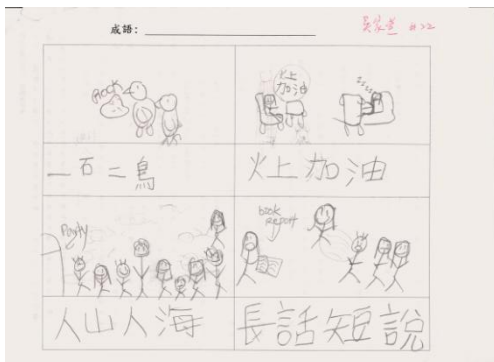 成語:
#22
ROCK
火上
加油
zzzz
一石二鳥
火上加油
Party
book
report
人山人海
長話短說